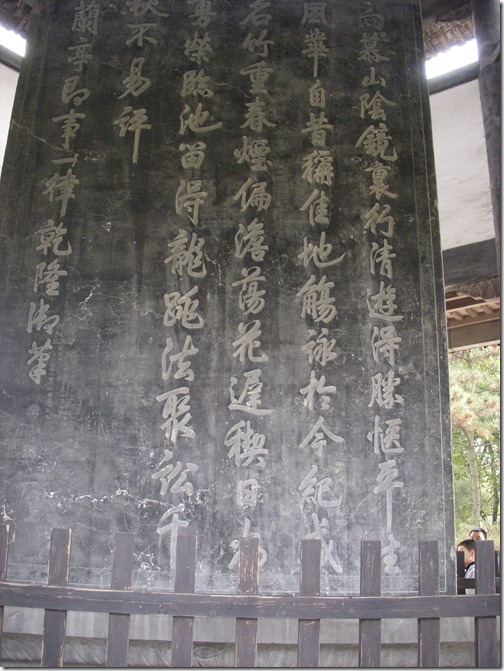 向慕山陰鏡裏行清遊得勝愜平生
風華自昔稱佳地觴詠於今紀盛
名竹重春煙偏澹蕩花遲禊日尚
旉榮臨池留得龍跳法聚訟千
秋不易評
蘭亭即事一律乾隆御筆